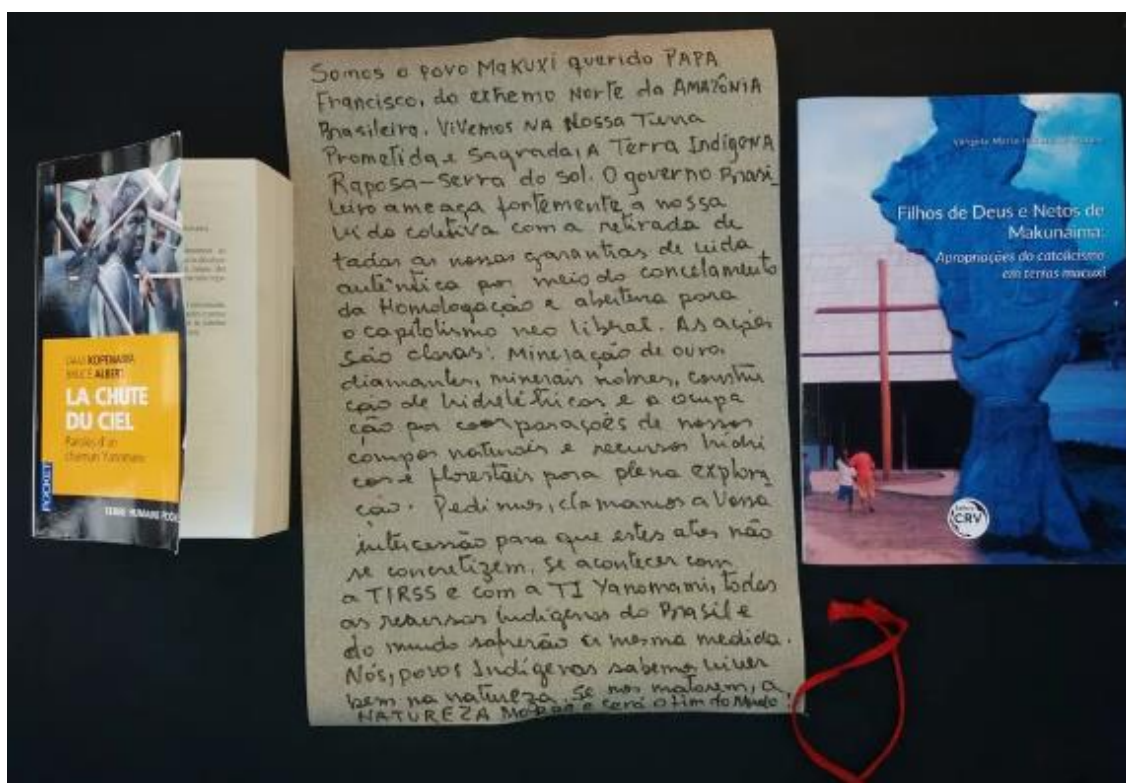 Somos o povo Makuxi querido PAPA
Francisco, do extremo Norte da AMAZÔNIA
Brasileira. Vivemos NA Nossa Terra
Prometida e Sagrada, A Terra IndígeNA
Raposa-Serra do sol. O governo Brasi-
leiro ameaça fortemente a nossa
vida coletiva com a retirada de
todas as nossas garantias de vida
autêntica por meio do cancelamento
da Homologação e abertura para
o capitalismo neo liberal. As ações
são claras: Mineração de ouro,
diamantes, minerais nobres, constru
ção de hidrelétricas e a ocupa
ção por coorporações de nossos
campos naturais e recursos hídri
cos e florestais para plena explora
ção. Pedimos, clamamos a Vossa
intercessão para que estes atos não
se concretizem. Se acontecer com
a TIRSS e com a TI Yanomami, todas
as reservas indígenas do Brasil e
do mundo sofrerão a mesma medida.
Nós, povos Indígenas sabemos viver
bem na natureza. Se nos matarem, a
NATUREZA Morre e será o fim do Mundo.
KOPENAWA
BRUCE ALBERT
LA CHUTE
DU CIEL
Paroles d'un
chaman Yanomami
POCKET
TERRE HUMAINE POCHE
Filhos de Deus e Netos de
Makunaima:
Apropriações do catolicismo
em terras macuxi
Editora
CRV